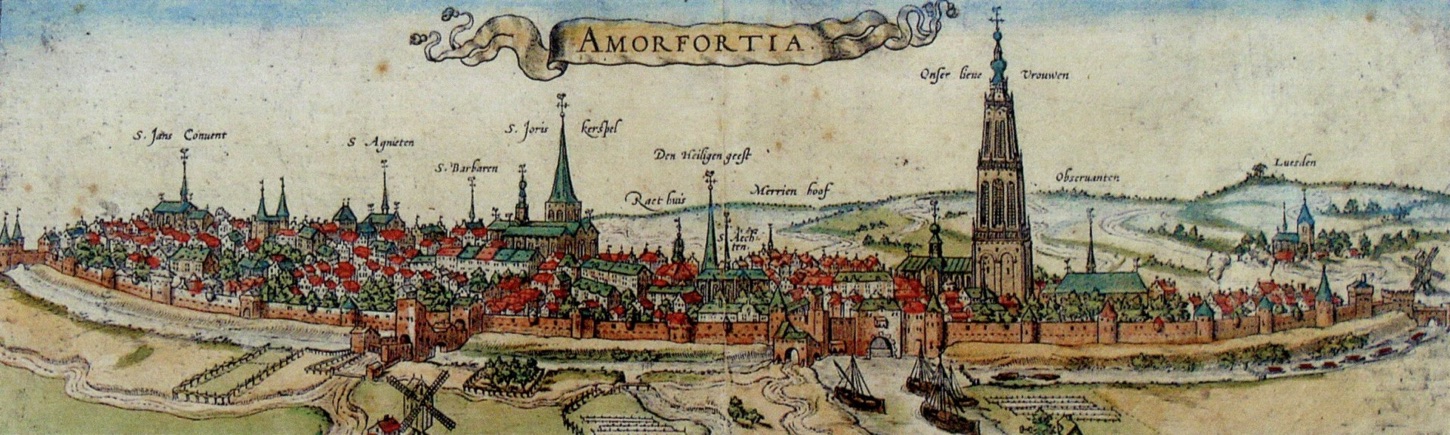 AMORFORTIA.
Onser lieue Vrouwen
S. Jans Conuent
S Agnieten
S. Barbaren
S. Joris kerspel
Den Heiligen geest
Raet huis
Merrien hoof
S. Aech
ten
Obseruanten
Luesden